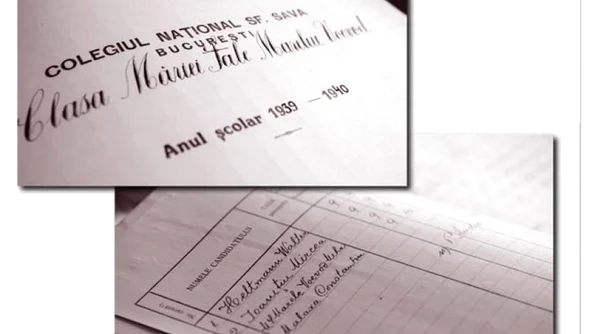 COLEGIUL NAȚIONAL SF. SAVA
BUCUREȘTI
Clasa Măriei Tale Marelui Voevod
Anul școlar 1939 — 1940
NUMELE CANDIDATULUI
Heltmann Walter
Ioanițiu Mircea
Marele Voevod Mihai
Malaxa Constantin